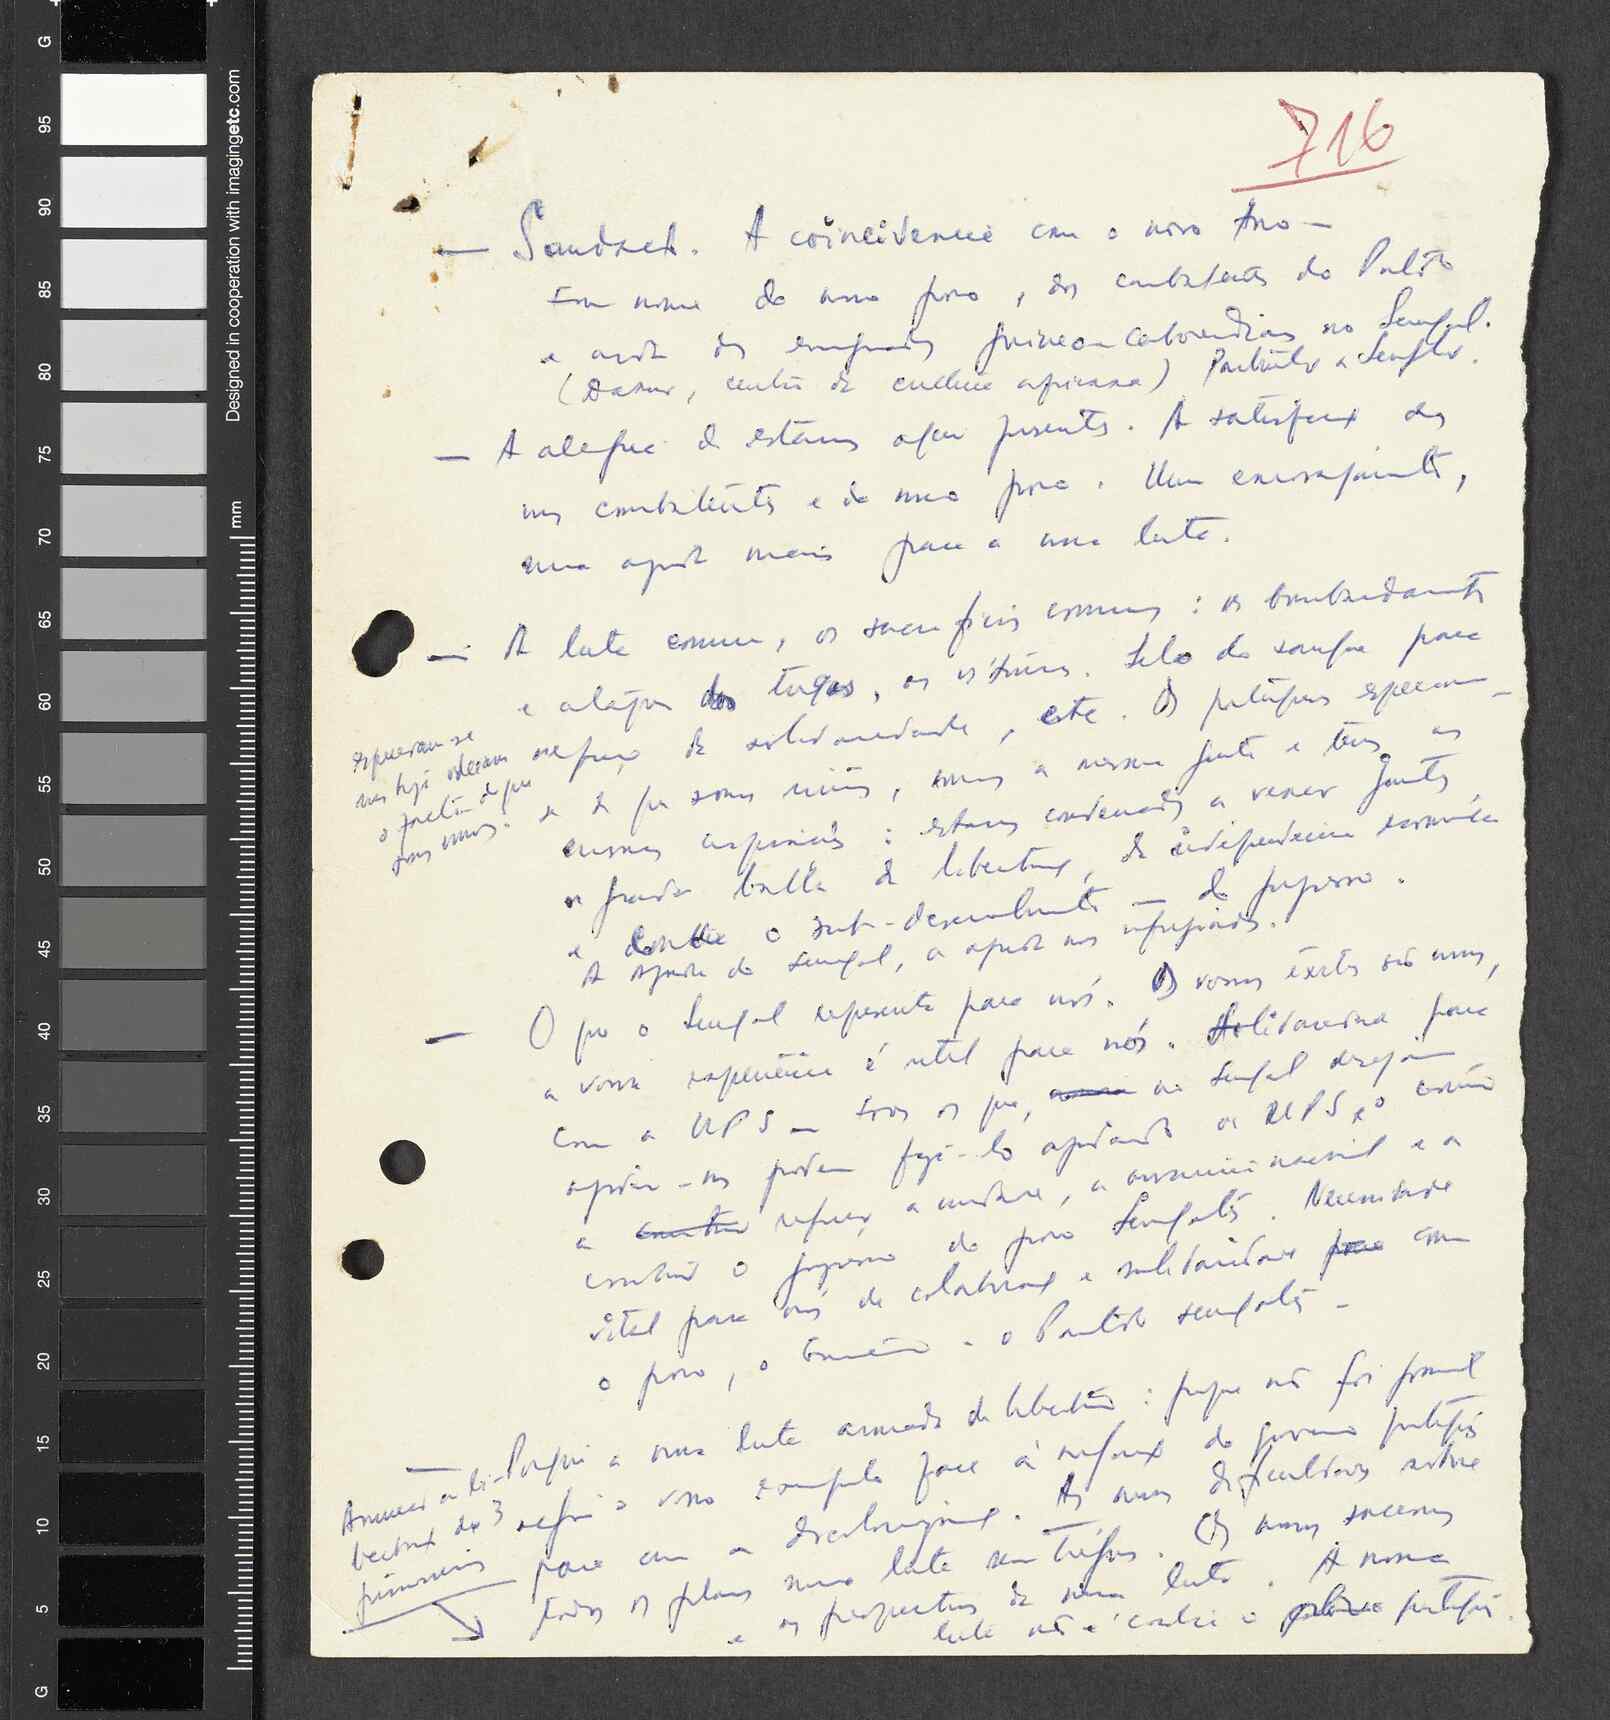 716
— Saudação. A coincidência com o novo Ano —
Em nome do nosso povo, dos combatentes do Partido
e ainda dos emigrados guineo caboverdianos no Senegal.
(Dakar, centro de cultura africana) Particular a Senghor.
— A alegria de estarmos aqui presentes. A satisfação dos
nos combatentes e do nosso povo. Um encorajamento,
uma ajuda mais para a nossa luta.
— A luta comum, os sacrifícios comuns: os bombardamentos
e ataques dos tugas, as vítimas. Selo do sangue para
reforço da solidariedade, este. Os portugueses esperavam
esperavam-se
mas hoje
o facto de que
somos unos.
se de que somos unos, somos a mesma gente e temos as
mesmas aspirações: estamos condenados a vencer juntos,
a grande batalha da libertação, da independência económica
e contra o sub-desenvolvimento — do progresso.
A ajuda do Senegal, a ajuda aos refugiados.
— O que o Senegal representa para nós. Os vossos êxitos são nossos,
a vossa experiência é útil para nós. Solidariedade para
com a UPS — todos os que, no Senegal desejam
ajudar-nos podem fazê-lo ajudando a UPS e o
a reforçar a unidade, a nacional e a
construir o progresso do povo Senegalês. Necessidade
vital para nós da colaboração e solidariedade para com
o povo, o Governo e o Partido senegalês —
— Porquê a nossa luta armada de libertação: porque não foi possível
Anunciar a li-
bertação dos 3
prisioneiros
seguir o vosso exemplo face à do governo português
para com a descolonização. As nossas dificuldades sobre
todos os planos numa luta sem tréguas. Os nossos sucessos
e as perspectivas da nossa luta. A nossa
luta não é contra o povo português.
Designed in cooperation with imagingetc.com
mm
G
95
90
85
80
75
70
65
60
55
50
45
40
35
30
25
20
15
10
5
G